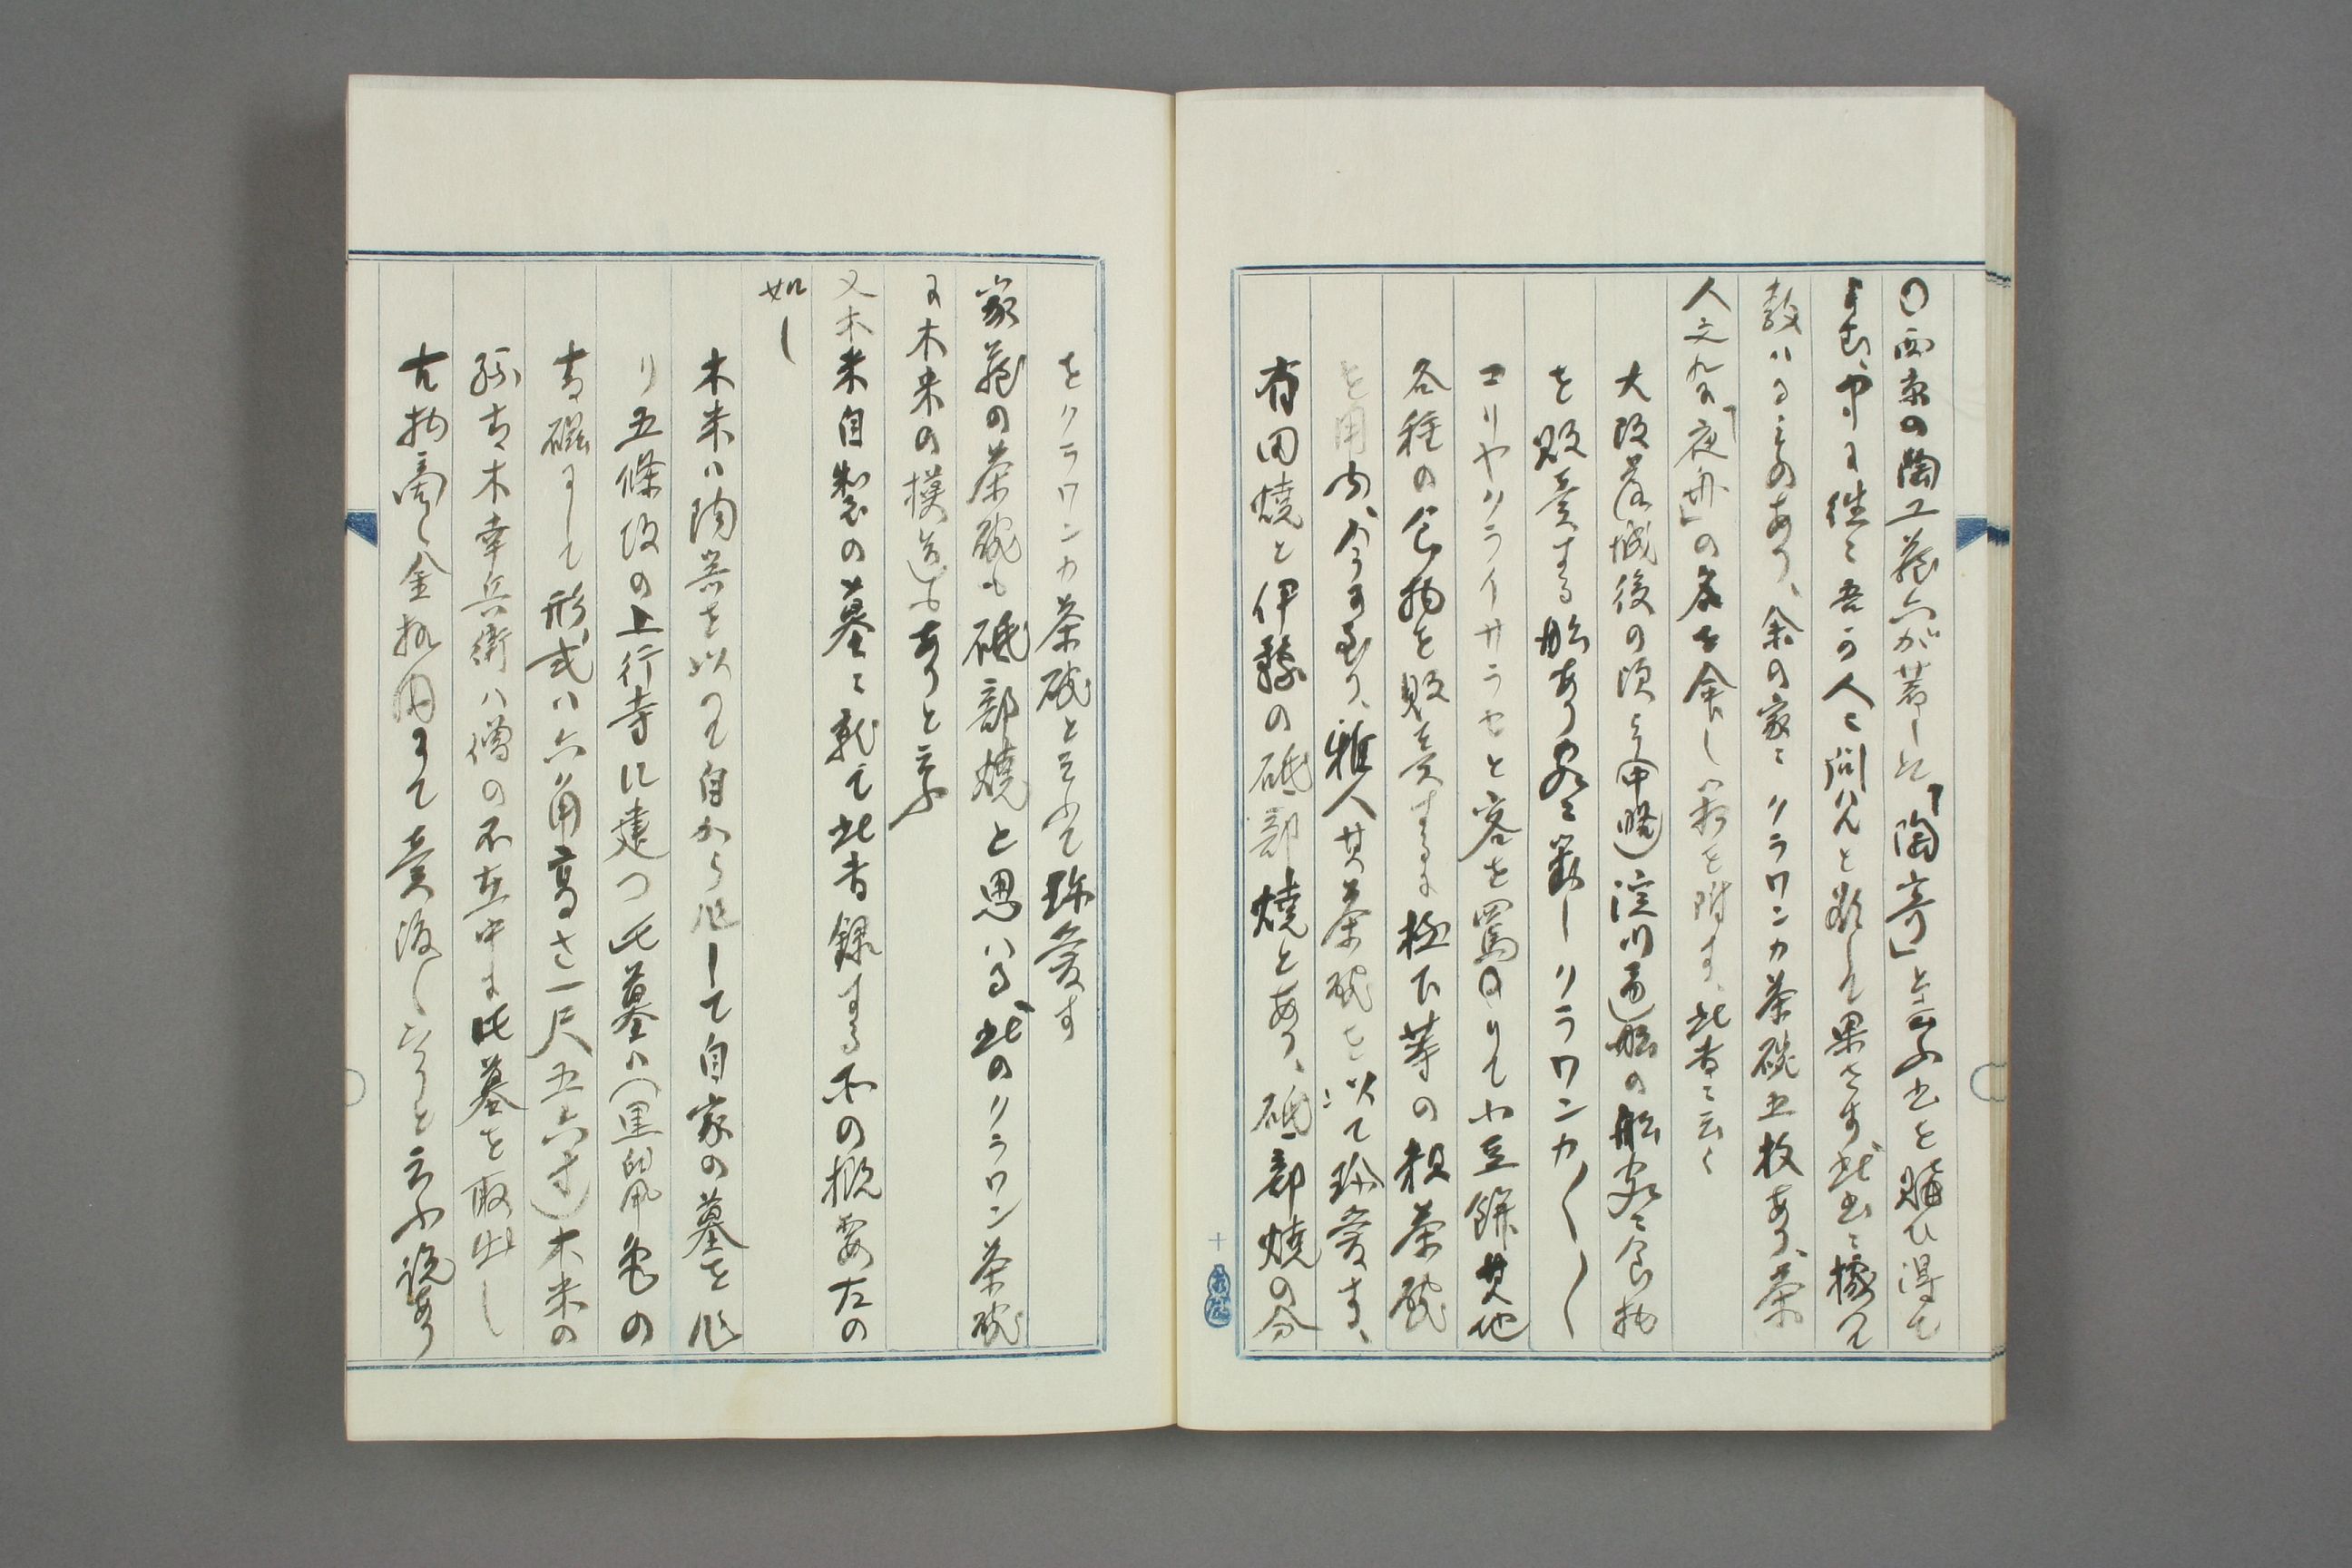 〇西京の陶工蔵六が著ーし「陶寄」と云ふ書を購ひ得て
よむ中に往々吾の人に問はんと欲して果さず、此書に據て
教はるものあり、余の家にクラワンカ茶碗五枚あり、茶
人文九の「夜舟」の名を命し箱を附す、此書に云く
大阪落城後の頃(今尚)淀川通船の船客に食物
を販売する船あり客に対しクラワンカ〱〱
コリヤクライサラセと客を罵のりて小豆餅其他
各種の食物を販売するに極下等の粗茶碗
を用ゆ、今に至り、雅人其茶碗を以て珍愛す、
有田焼と伊豫の砥部焼とあり、砥部焼の分
をクラワンカ茶碗と云ふて珍愛す
家蔵の茶碗も砥部焼と思はる、此のクラワン茶碗
に木米の模造もありと云ふ
又木米自製の墓に就て此書録する所の概要左の
如し
木米ハ陶器を以て自から作して自家の墓を作
り五條坂の上行寺に建つ此墓ハ(黒鼠色の
青磁にして形式ハ六角高さ一尺五六寸)木米の
孫青木幸兵衛ハ僧の不在中に此墓を取出し
古物商へ金拾円にて売渡しとりと云ふ説あり
十